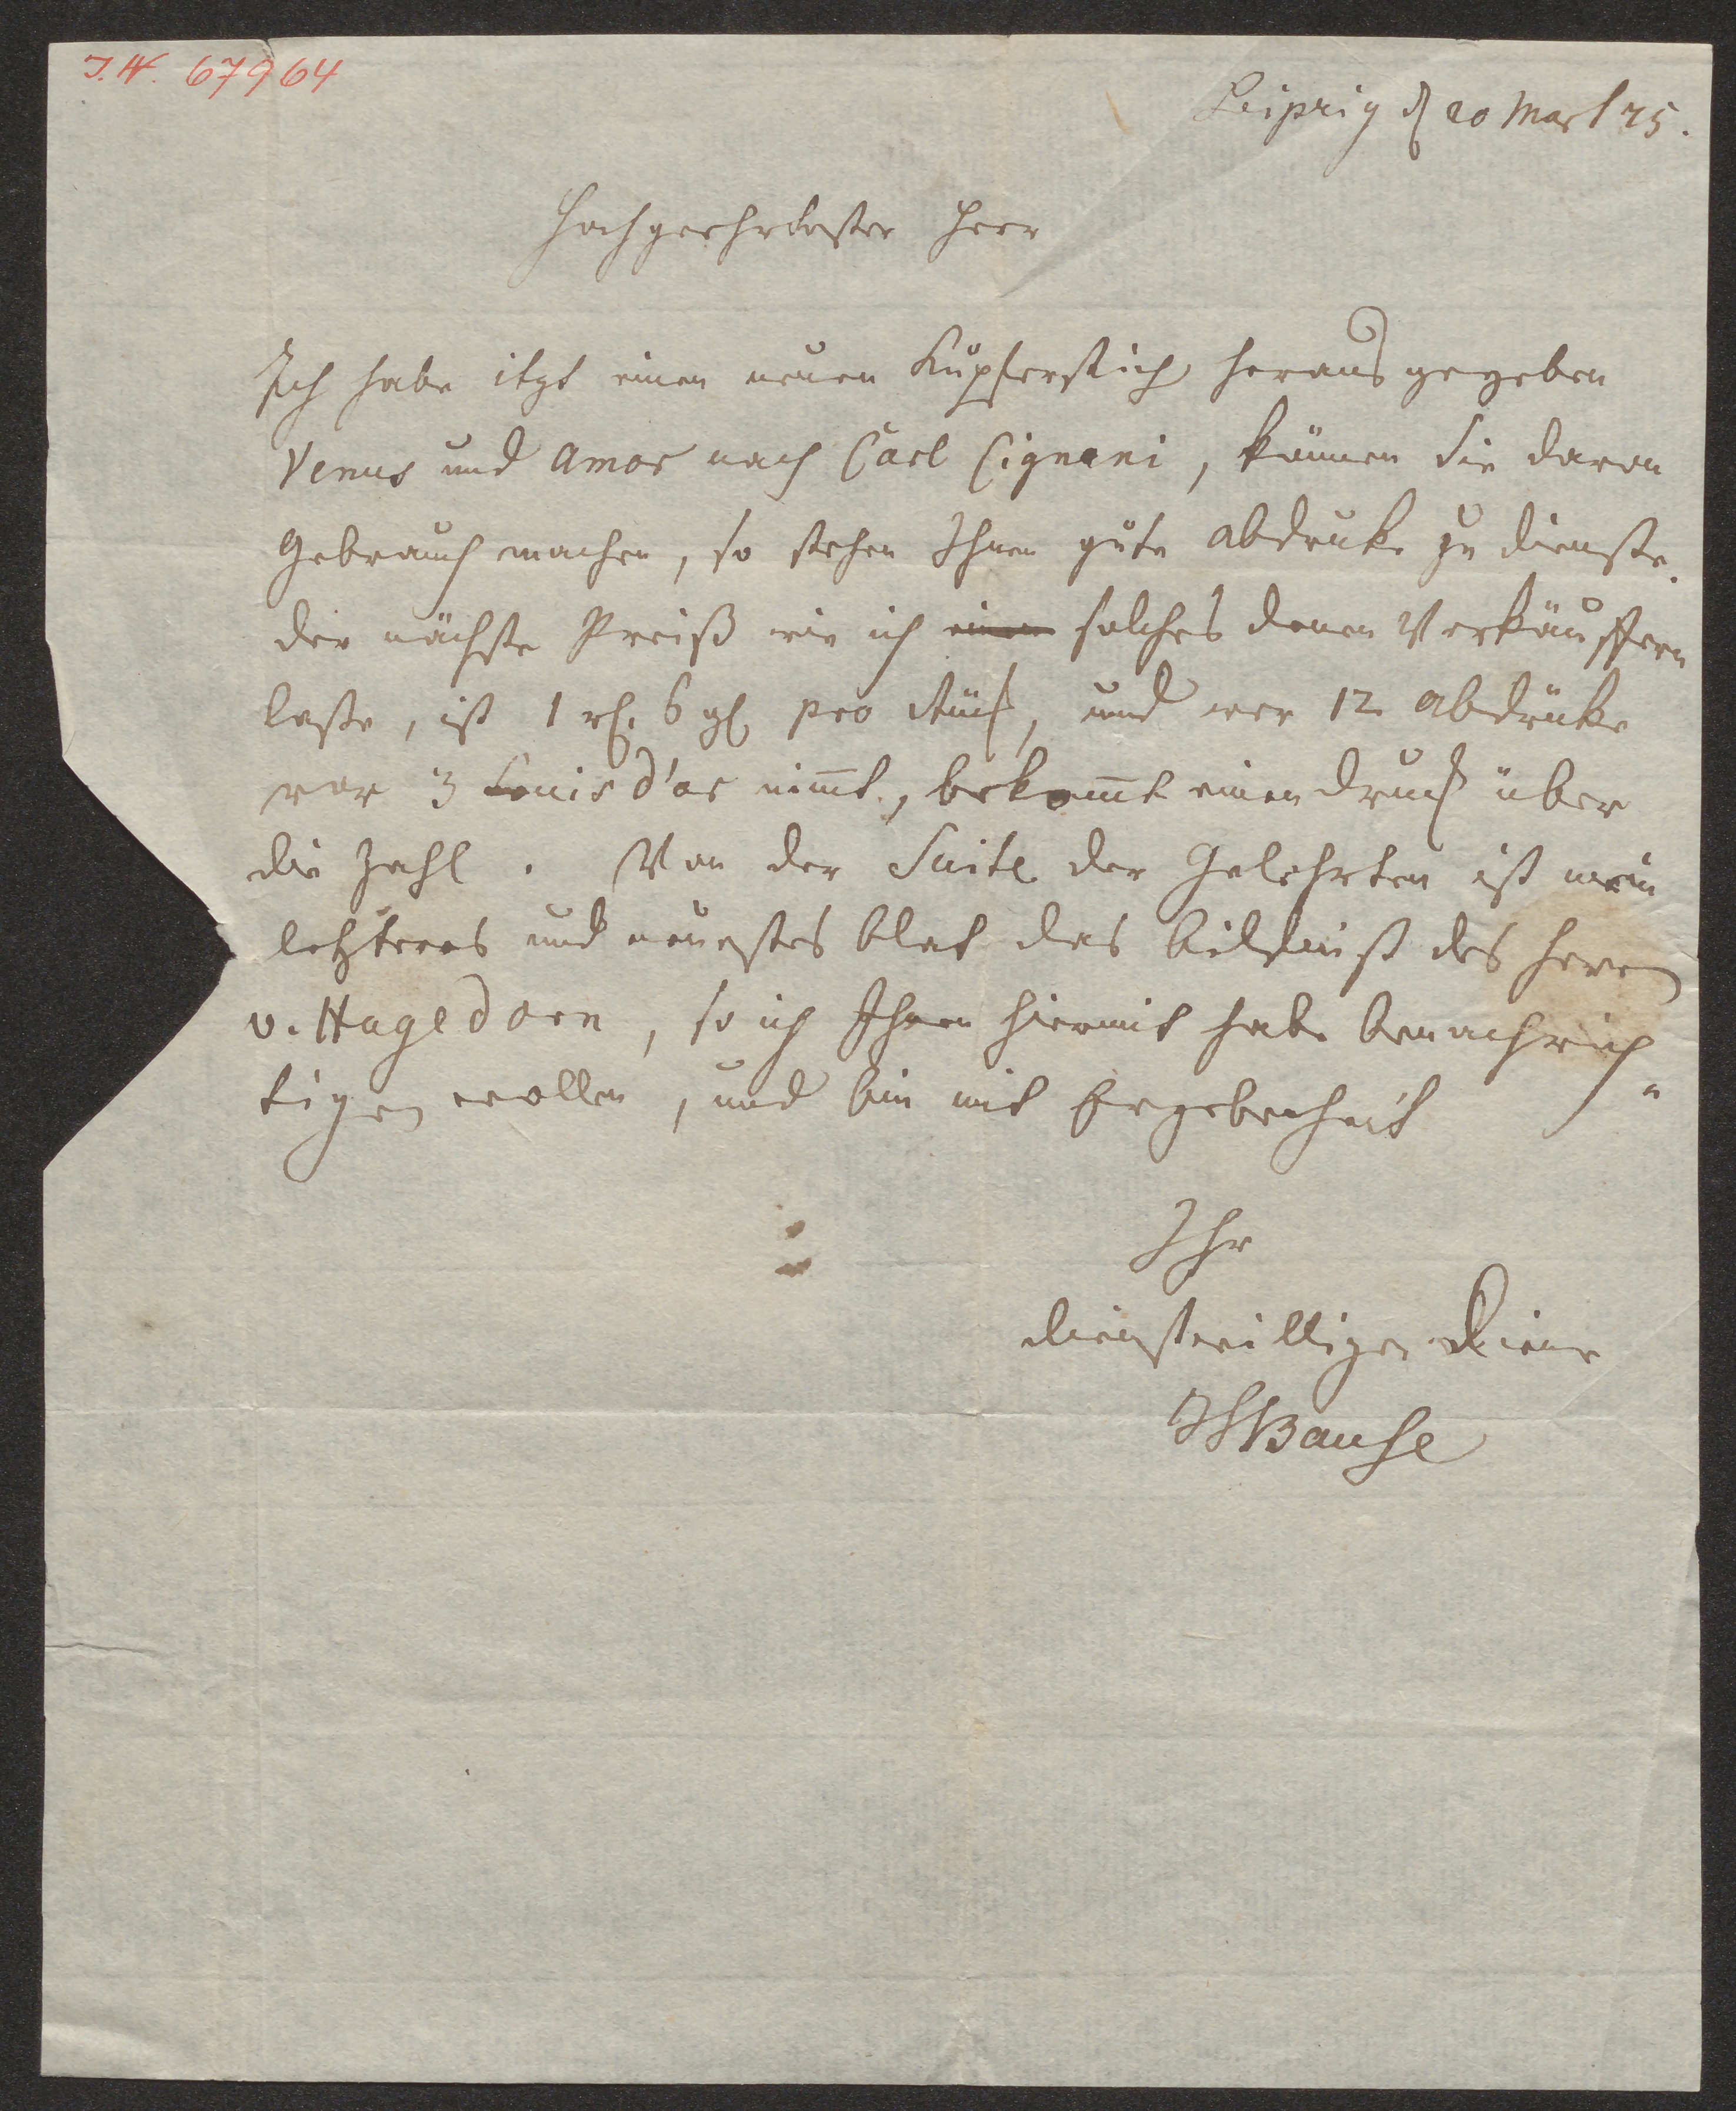 J.N. 67964
Leipzig d 20 Mart 75.
Hochgeehrtester Herr
Ich habe itzt einen neuen Kupferstich herausgegeben
Venus und Amor nach Carl Cignani, können Sie davon
Gebrauch machen, so stehen Ihnen gute Abdruke zu dienste.
der nächste Preiß wie ich einen solches denen Verkäuffern
lasse, ist 1 rh. 6 gl pro Stück, und wer 12 Abdrüke
vor 3 Louis d'or nim̄t, bekom̄t einen druck über
die Zahl. Von der Suite der Gelehrten ist mein
letzteres und neuestes blat das bildniß des Herrn
v. Hagedorn, so ich Ihnen hiermit habe benachrich
tigen wollen, und bin mit Ergebenheit
Ihr
dienstwilliger Diener
JFBause